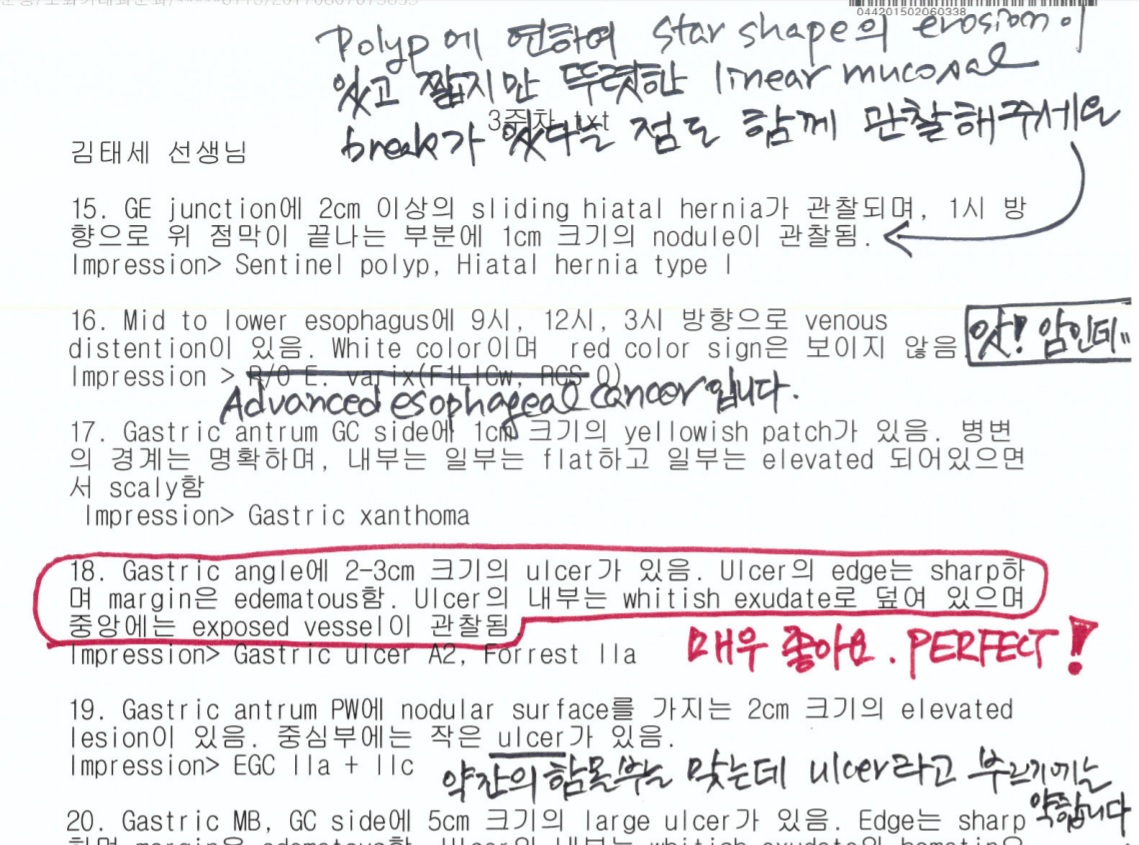 044201502060338
Polyp에 연하여 star shape의 erosion이
있고 짧지만 뚜렷한 linear mucosal
break가 있다는 점도 함께 관찰해주세요
3주차.txt
김태세 선생님
15. GE junction에 2cm 이상의 sliding hiatal hernia가 관찰되며, 1시 방
향으로 위 점막이 끝나는 부분에 1cm 크기의 nodule이 관찰됨.
Impression> Sentinel polyp, Hiatal hernia type I
16. Mid to lower esophagus에 9시, 12시, 3시 방향으로 venous
distention이 있음. White color이며 red color sign은 보이지 않음.
앗! 암인데..
Impression > R/O E. varix(F1LiCw, RCS 0)
Advanced esophageal cancer입니다.
17. Gastric antrum GC side에 1cm 크기의 yellowish patch가 있음. 병변
의 경계는 명확하며, 내부는 일부는 flat하고 일부는 elevated 되어있으면
서 scaly함
Impression> Gastric xanthoma
18. Gastric angle에 2-3cm 크기의 ulcer가 있음. Ulcer의 edge는 sharp하
며 margin은 edematous함. Ulcer의 내부는 whitish exudate로 덮여 있으며
중앙에는 exposed vessel이 관찰됨
Impression> Gastric ulcer A2, Forrest IIa
매우 좋아요. PERFECT!
19. Gastric antrum PW에 nodular surface를 가지는 2cm 크기의 elevated
lesion이 있음. 중심부에는 작은 ulcer가 있음.
Impression> EGC IIa + IIc
약간의 함몰부는 맞는데 ulcer라고 부르기에는
약합니다
20. Gastric MB, GC side에 5cm 크기의 large ulcer가 있음. Edge는 sharp